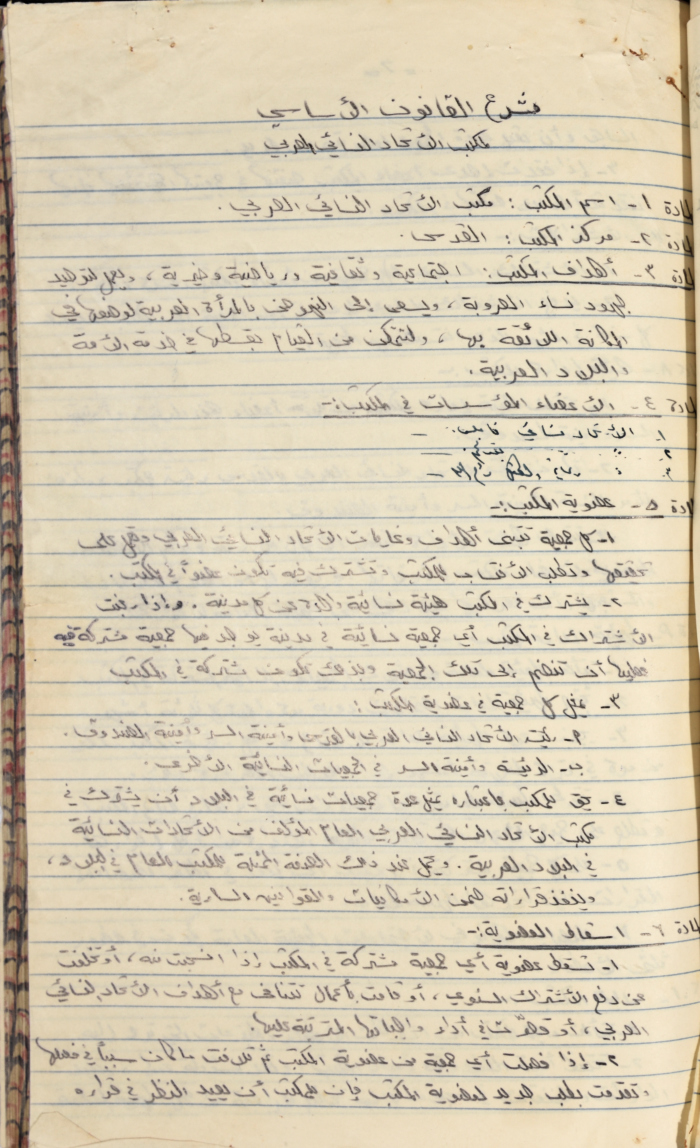 مشروع القانون الأساسي
لمكتب الاتحاد النسائي العربي
المادة ١- اسم المكتب : مكتب الاتحاد النسائي العربي .
المادة ٢- مركز المكتب : القدس .
المادة ٣- أهداف المكتب : اجتماعية وثقافية ورياضية وخيرية ، ويعمل لتوحيد
جهود نساء العروبة ، ويسعى إلى النهوض بالمرأة العربية لوضعها في
المكانة اللائقة بها ، ولتتمكن من القيام بقسطها في خدمة الأمة
والبلاد العربية .
المادة ٤- الأعضاء المؤسسات في المكتب :-
١. الاتحاد نسائي نابلس. -
٢. " "
٣. " رام الله -
المادة ٥- عضوية المكتب :-
١- كل جمعية تتبنى أهداف وغايات الاتحاد النسائي العربي وتعمل على
تحقيقها وتطلب الانتساب للمكتب وتشترك فيه تكون عضواً في المكتب .
٢- يشترك في المكتب هيئة نسائية واحدة من كل مدينة . وإذا رغبت
الاشتراك في المكتب أي جمعية نسائية في مدينة يوجد فيها جمعية مشتركة فيه
فعليها أن تنضم إلى تلك الجمعية وبذلك تكون مشتركة في المكتب
٣- يمثل كل جمعية في عضوية المكتب :
أ- رئيسة الاتحاد النسائي العربي بالقدس وأمينة السر وأمينة الصندوق .
ب- الرئيسة وأمينة السر في الجمعيات النسائية الأخرى .
٤- يحق للمكتب باعتباره يمثل عدة جمعيات نسائية في البلاد أن يشترك في
مكتب الاتحاد النسائي العربي العام المؤلف من الاتحادات النسائية
في البلاد العربية . ويحمل عند ذلك الصفة الممثلة للمكتب العام في البلاد ،
وينفذ قراراته ضمن الإمكانيات والقوانين السارية .
المادة ٦- اسقاط العضوية :-
١- تسقط عضوية أي جمعية مشتركة في المكتب إذا انسحبت منه ، أو تخلفت
عن دفع الاشتراك السنوي ، أو قامت بأعمال تتنافى مع أهداف الاتحاد النسائي
العربي ، أو قصّرت في أداء واجباتها المترتبة عليها .
٢- إذا فصلت أي جمعية من عضوية المكتب ثم تلافت ما كان سبباً في فصلها
وتقدمت بطلب جديد لعضوية المكتب فإن للمكتب أن يعيد النظر في قراره